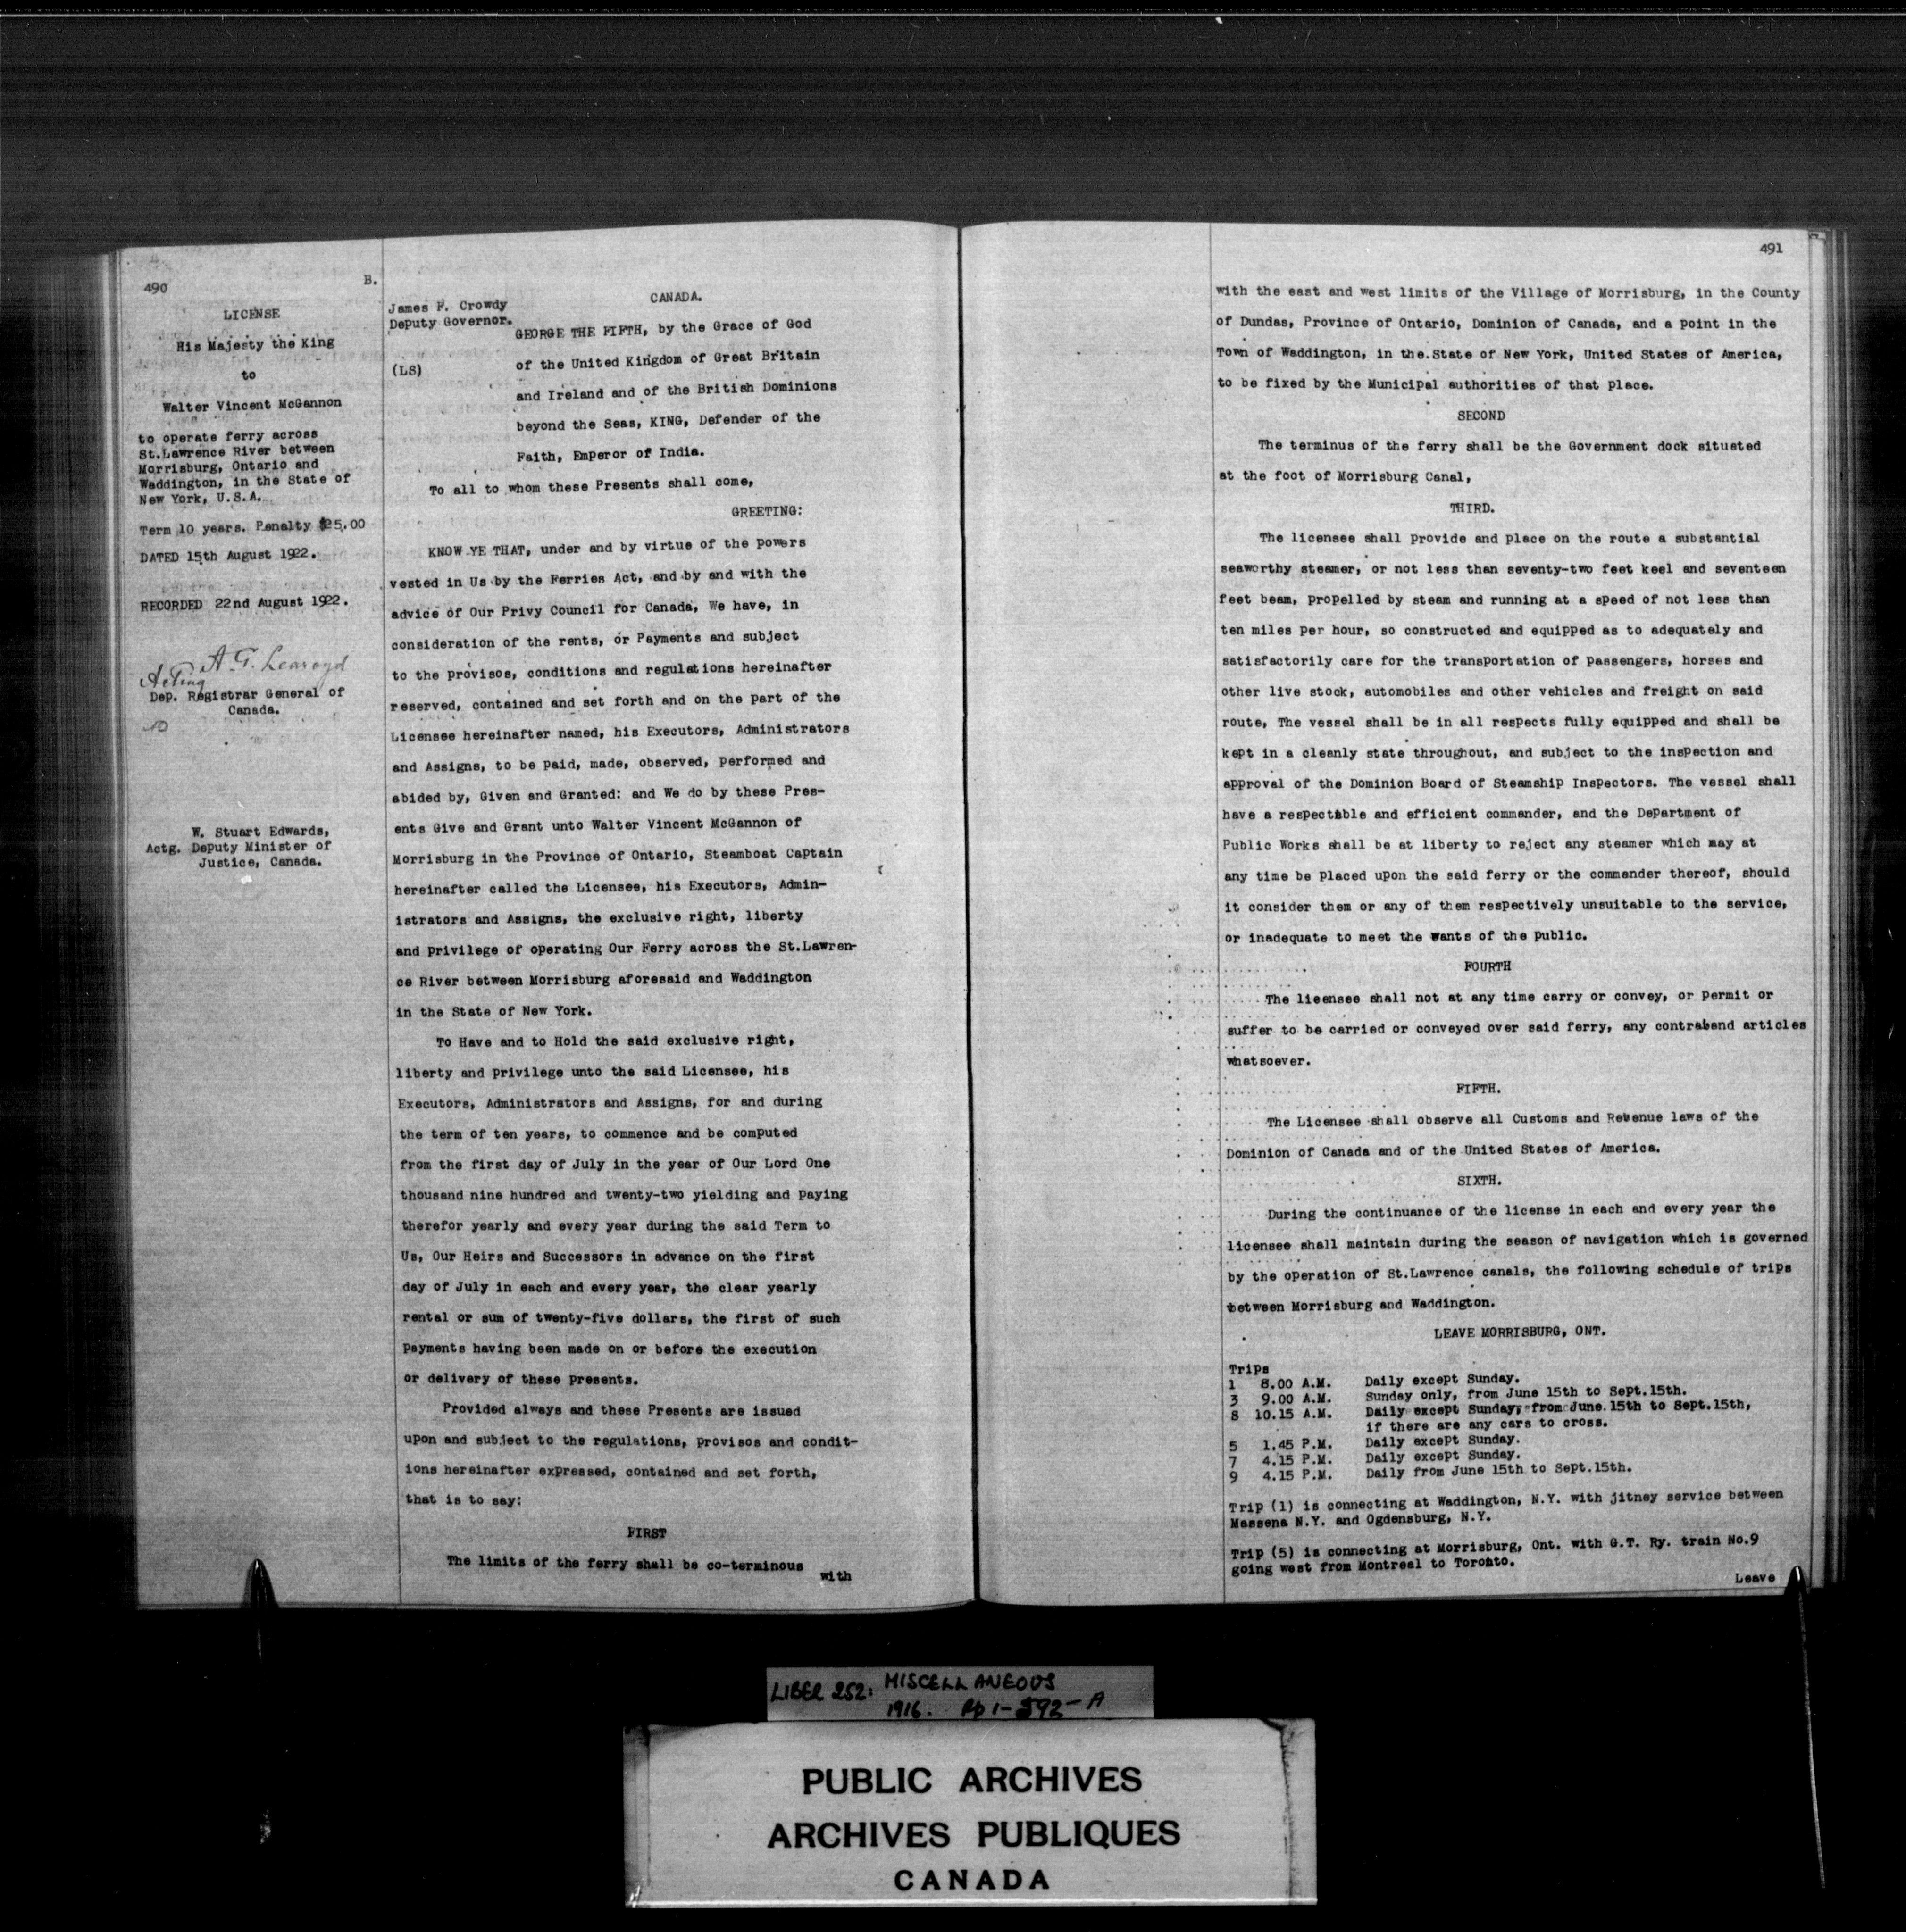 490
B.
LICENSE
His Majesty the King
to
Walter Vincent McGannon
to operate ferry across
St.Lawrence River between
Morrisburg, Ontario and
Waddington, in the State of
New York, U.S.A.
Term 10 years. Penalty $25.00
DATED 15th August 1922.
RECORDED 22nd August 1922.
A. G. Learoyd
Acting
Dep. Registrar General of
Canada.
W. Stuart Edwards,
Actg. Deputy Minister of
Justice, Canada.
James F. Crowdy
Deputy Governor.
(LS)
CANADA.
GEORGE THE FIFTH, by the Grace of God
of the United Kingdom of Great Britain
and Ireland and of the British Dominions
beyond the Seas, KING, Defender of the
Faith, Emperor of India.
To all to whom these Presents shall come,
GREETING:
KNOW YE THAT, under and by virtue of the powers
vested in Us by the Ferries Act, and by and with the
advice of Our Privy Council for Canada, We have, in
consideration of the rents, or Payments and subject
to the provisos, conditions and regulations hereinafter
reserved, contained and set forth and on the part of the
Licensee hereinafter named, his Executors, Administrators
and Assigns, to be paid, made, observed, performed and
abided by, Given and Granted: and We do by these Pres-
ents Give and Grant unto Walter Vincent McGannon of
Morrisburg in the Province of Ontario, Steamboat Captain
hereinafter called the Licensee, his Executors, Admin-
istrators and Assigns, the exclusive right, liberty
and privilege of operating Our Ferry across the St.Lawren-
ce River between Morrisburg aforesaid and Waddington
in the State of New York.
To Have and to Hold the said exclusive right,
liberty and privilege unto the said Licensee, his
Executors, Administrators and Assigns, for and during
the term of ten years, to commence and be computed
from the first day of July in the year of Our Lord One
thousand nine hundred and twenty-two yielding and paying
therefor yearly and every year during the said Term to
Us, Our Heirs and Successors in advance on the first
day of July in each and every year, the clear yearly
rental or sum of twenty-five dollars, the first of such
payments having been made on or before the execution
or delivery of these presents.
Provided always and these Presents are issued
upon and subject to the regulations, provisos and condit-
ions hereinafter expressed, contained and set forth,
that is to say:
FIRST
The limits of the ferry shall be co-terminous
with
491
with the east and west limits of the Village of Morrisburg, in the County
of Dundas, Province of Ontario, Dominion of Canada, and a point in the
Town of Waddington, in the State of New York, United States of America,
to be fixed by the Municipal authorities of that place.
SECOND
The terminus of the ferry shall be the Government dock situated
at the foot of Morrisburg Canal,
THIRD.
The licensee shall provide and place on the route a substantial
seaworthy steamer, or not less than seventy-two feet keel and seventeen
feet beam, propelled by steam and running at a speed of not less than
ten miles per hour, so constructed and equipped as to adequately and
satisfactorily care for the transportation of passengers, horses and
other live stock, automobiles and other vehicles and freight on said
route, The vessel shall be in all respects fully equipped and shall be
kept in a cleanly state throughout, and subject to the inspection and
approval of the Dominion Board of Steamship Inspectors. The vessel shall
have a respectable and efficient commander, and the Department of
Public Works shall be at liberty to reject any steamer which may at
any time be placed upon the said ferry or the commander thereof, should
it consider them or any of them respectively unsuitable to the service,
or inadequate to meet the wants of the public.
FOURTH
The licensee shall not at any time carry or convey, or permit or
suffer to be carried or conveyed over said ferry, any contraband articles
whatsoever.
FIFTH.
The Licensee shall observe all Customs and Revenue laws of the
Dominion of Canada and of the United States of America.
SIXTH.
During the continuance of the license in each and every year the
licensee shall maintain during the season of navigation which is governed
by the operation of St.Lawrence canals, the following schedule of trips
between Morrisburg and Waddington.
LEAVE MORRISBURG, ONT.
Trips
1 8.00 A.M. Daily except Sunday.
3 9.00 A.M. Sunday only, from June 15th to Sept.15th.
8 10.15 A.M. Daily except Sunday, from June 15th to Sept.15th,
if there are any cars to cross.
5 1.45 P.M. Daily except Sunday.
7 4.15 P.M. Daily except Sunday.
9 4.15 P.M. Daily from June 15th to Sept.15th.
Trip (1) is connecting at Waddington, N.Y. with jitney service between
Massena N.Y. and Ogdensburg, N.Y.
Trip (5) is connecting at Morrisburg, Ont. with G.T. Ry. train No.9
going west from Montreal to Toronto.
Leave
LIBER 252: MISCELLANEOUS
1916. Pp 1-592-A
PUBLIC ARCHIVES
ARCHIVES PUBLIQUES
CANADA